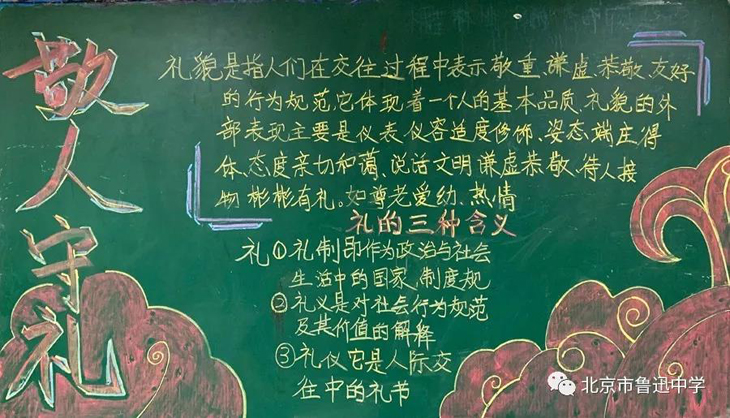 敬人守礼
礼貌是指人们在交往过程中表示敬重、谦虚、恭敬、友好
的行为规范,它体现着一个人的基本品质、礼貌的外
部表现主要是仪表仪容适度修饰、姿态、端庄得
体、态度亲切和蔼、说话文明谦虚恭敬、待人接
物彬彬有礼。如尊老爱幼、热情
礼的三种含义
礼①礼制即作为政治与社会
生活中的国家、制度规
②礼义是对社会行为规范
及其价值的解释
③礼仪它是人际交
往中的礼节
北京市鲁迅中学